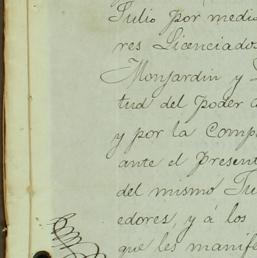 Julio por medio
res Licenciados
Monjardin y
tud del poder
y por la Comp
ante el present
del mismo Tri
edores, y á los
que les manife